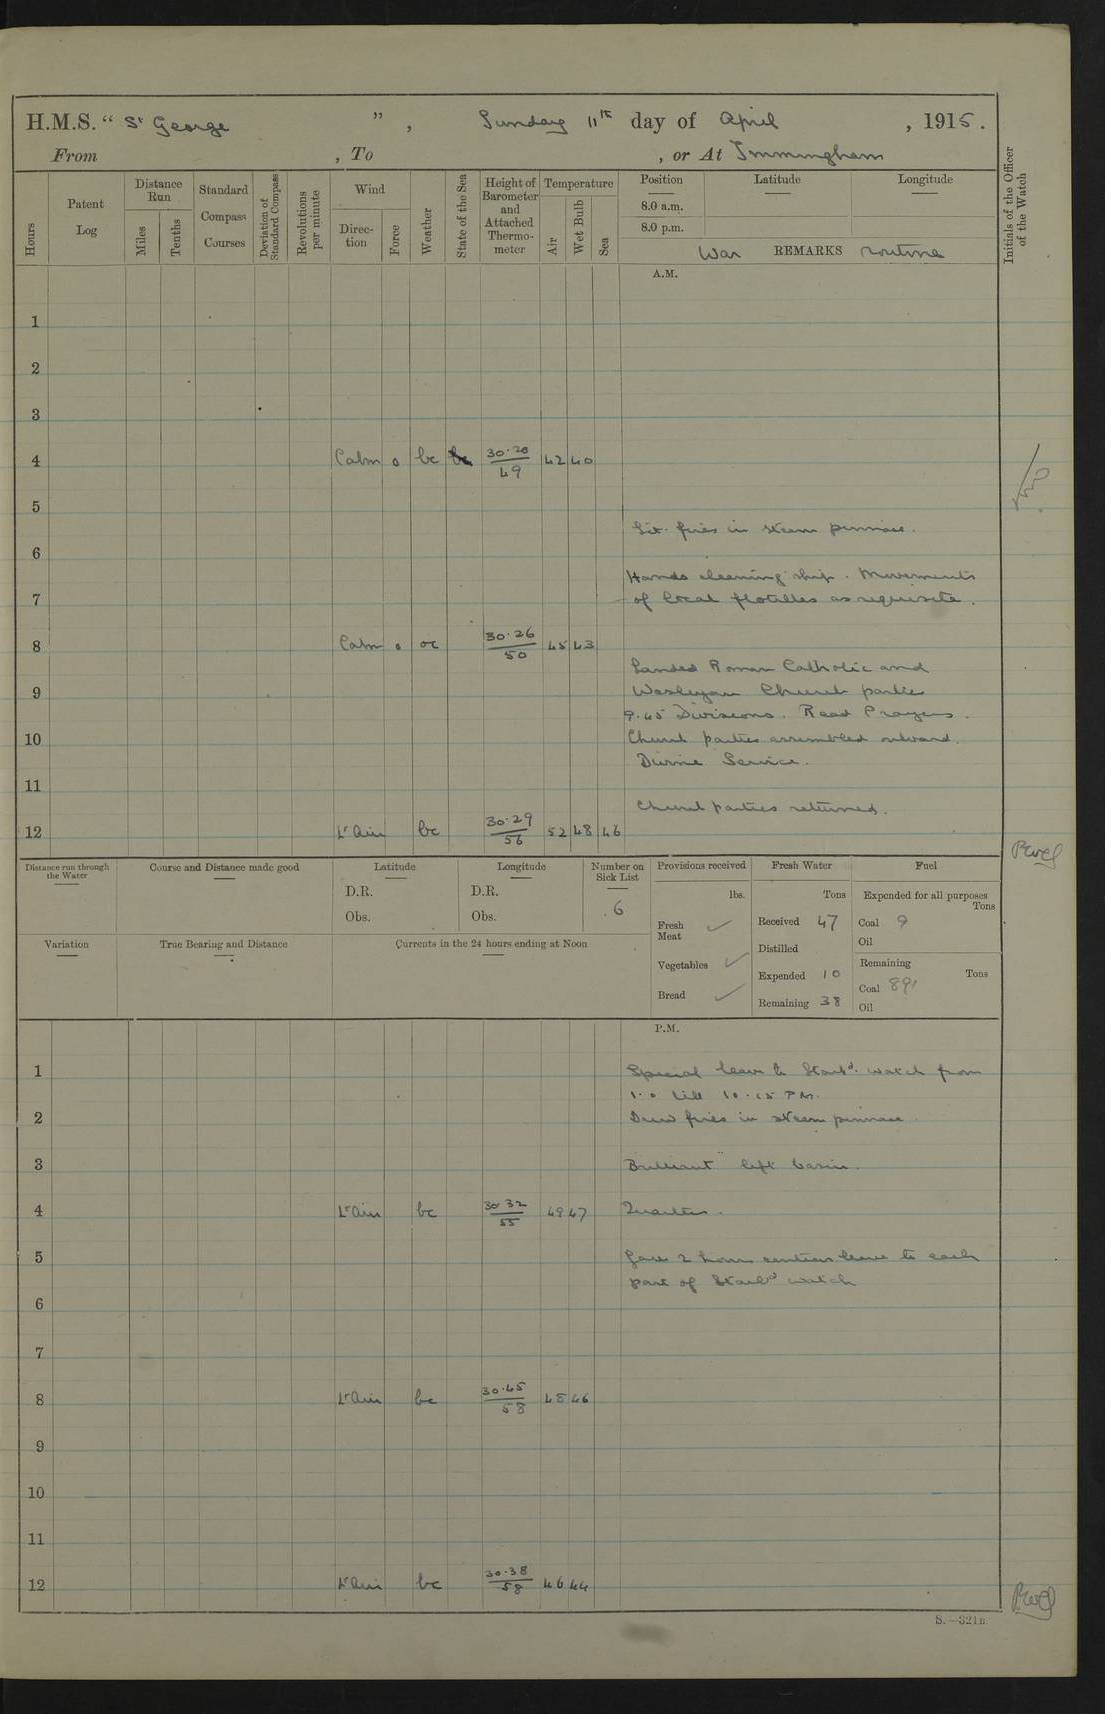 H.M.S. “ St George ” , Sunday 11th day of April , 1915.
From , To , or At Immingham
Hours
Patent Log
Distance Run
Miles
Tenths
Standard Compass Courses
Deviation of Standard Compass
Revolutions per minute
Wind
Direc-tion
Force
Weather
State of the Sea
Height of Barometer and Attached Thermo-meter
Temperature
Air
Wet Bulb
Sea
Position
8.0 a.m.
8.0 p.m.
Latitude
Longitude
Initials of the Officer of the Watch
War REMARKS routine
A.M.
1
2
3
4 Calm 0 bc 30.20 49 42 40
5
Lit fires in steam pinnace.
6
Hands cleaning ship. Movements
7 of local flotillas as requisite.
8 Calm 0 oc 30.26 50 45 43
Landed Roman Catholic and
9 Wesleyan Church parties
9.45 Divisions. Read Prayers.
10 Church parties assembled onboard.
Divine Service.
11
Church parties returned.
12 Lt Airs bc 30.29 56 52 48 46
Distance run through the Water
Course and Distance made good
Latitude
D.R.
Obs.
Longitude
D.R.
Obs.
Number on Sick List
6
Provisions received
lbs.
Fresh Meat ✓
Vegetables ✓
Bread ✓
Fresh Water
Tons
Received 47
Distilled
Expended 10
Remaining 38
Fuel
Expended for all purposes
Tons
Coal 9
Oil
Remaining
Tons
Coal 891
Oil
Variation
True Bearing and Distance
Currents in the 24 hours ending at Noon
P.M.
1 Special leave to Starbd. watch from
1.0 till 10.15 PM.
2 Drew fires in steam pinnace.
3 "Brilliant" left basin.
4 Lt Airs bc 30.32 55 49 47 Quarters.
5 Gave 2 hours leave to each
part of Starbd watch
6
7
8 Lt Airs bc 30.45 58 48 46
9
10
11
12 Lt Airs bc 30.38 58 46 44
S.—321B